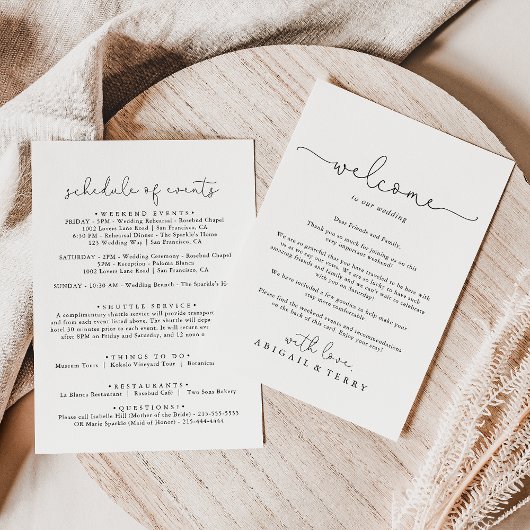 schedule of events
• WEEKEND EVENTS •
FRIDAY - 5PM - Wedding Rehearsal - Rosebud Chapel
1002 Lovers Lane Road | San Francisco, CA
6:30 PM - Rehearsal Dinner - The Sparkle's Home
123 Wedding Way | San Francisco, CA
SATURDAY - 2PM - Wedding Ceremony - Rosebud Chapel
5PM - Reception - Paloma Blanca
1002 Lovers Lane Road | San Francisco, CA
SUNDAY - 10:30 AM - Wedding Brunch - The Sparkle's H
• SHUTTLE SERVICE •
A complimentary shuttle service will provide transport
and from each event listed above. The shuttle will depa
hotel 30 minutes prior to each event. It will return eve
after 8PM on Friday and Saturday, and 12 noon o
• THINGS TO DO •
Museum Tours | Kokole Vineyard Tour | Botanical
• RESTAURANTS •
La Blanca Restaurant | Rosebud Café | Two Sons Bakery
• QUESTIONS? •
Please call Isabelle Hill (Mother of the Bride) - 215-555-5555
OR Marie Sparkle (Maid of Honor) - 215-444-4444
welcome
to our wedding
Dear Friends and Family,
Thank you so much for joining us on this
very important weekend!
We are so grateful that you have traveled to be here with
us as we say our vows. We are so lucky to have such
amazing friends and family and we can't wait to celebrate
with you on Saturday!
We have included a few goodies to help make your
stay more comfortable.
Please find the weekend events and recommendations
on the back of this card. Enjoy your stay!
with love,
ABIGAIL & TERRY